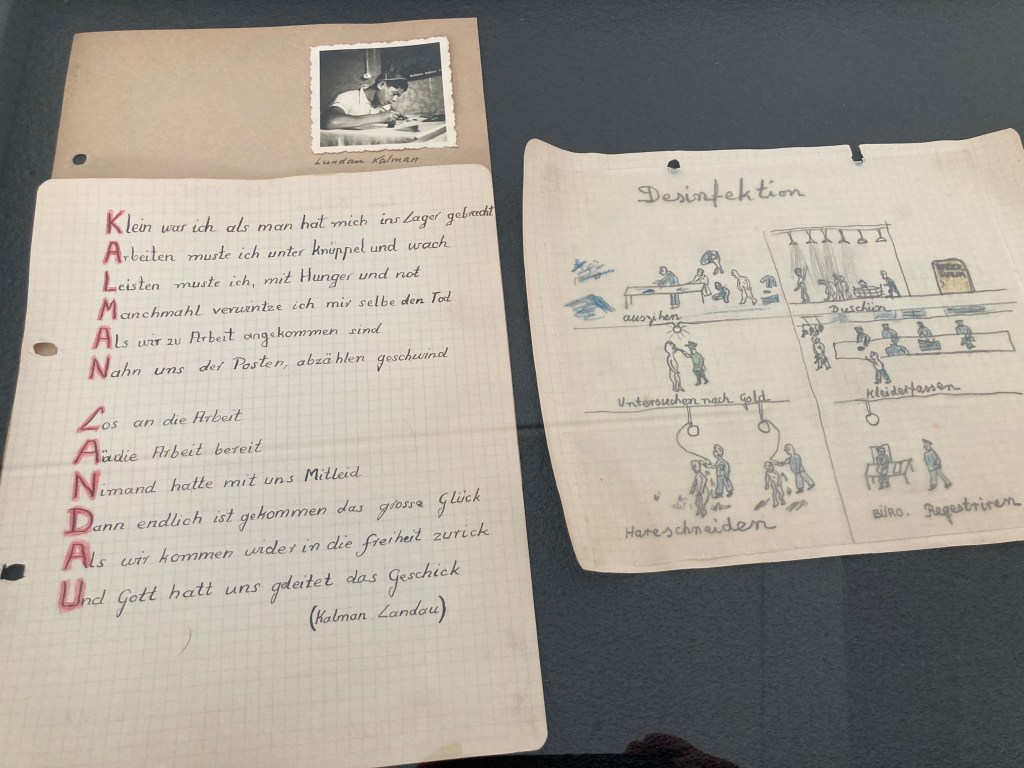 Landau Kalman
Klein war ich als man hat mich ins Lager gebracht
Arbeiten muste ich unter Knüppel und wach
Leisten muste ich, mit Hunger und not
Manchmahl verwintze ich mir selbe den Tod
Als wir zu Arbeit angekommen sind
Nahn uns der Posten, abzählen geschwind
Los an die Arbeit
Aädie Arbeit bereit
Nimand hatte mit uns Mitleid
Dann endlich ist gekommen das grosse Glück
Als wir kommen wider in die freiheit zurück
Und Gott hatt uns gdeitet das Geschick
(Kalman Landau)
Desinfektion
auszihen
Duschen
Untersuchen nach Gold
Kleiderfassen
Hareschneiden
BÜRO. Regestriren